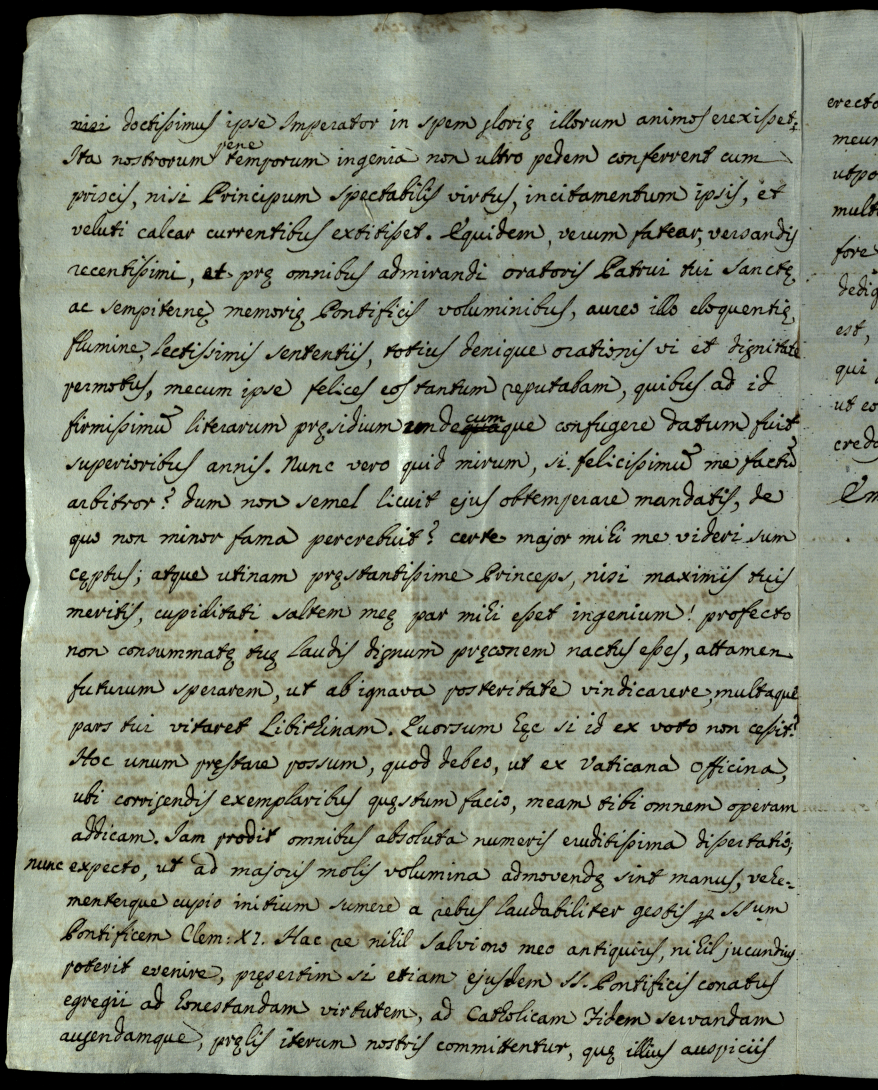 nisi doctissimus ipse Imperator in spem glorię illorum animos erexisset.
Ita nostrorum pene temporum ingenia non ultro pedem conferrent cum
priscis, nisi Principum spectabilis virtus, incitamentum ipsis, et
veluti calcar currentibus extitisset. Equidem, verum fatear, versandis
recentissimi, et prę omnibus admirandi oratoris Patrui tui sanctę
ac sempiternę memorię Pontificis voluminibus, aureo illo eloquentię
flumine, lectissimis sententijs, totius denique orationis vi et dignitate
permotus, mecum ipse felices eos tantum reputabam, quibus ad id
firmissimū literarum pręsidium undecumque confugere datum fuit
superioribus annis. Nunc vero quid mirum, si felicissimū me factū
arbitror? dum non semel licuit ejus obtemperare mandatis, de
quo non minor fama percrebuit? certe major mihi me videri sum
cęptus; atque utinam pręstantissime Princeps, nisi maximis tuis
meritis, cupiditati saltem meę par mihi esset ingenium! profecto
non consummatę tuę laudis dignum pręconem nactus esses, attamen
futurum sperarem, ut ab ignava posteritate vindicarere, multaque
pars tui vitaret Libithinam. Quorsum hęc si id ex voto non cessit?
Hoc unum pręstare possum, quod debeo, ut ex Vaticana Officina,
ubi corrigendis exemplaribus quęstum facio, meam tibi omnem operam
addicam. Iam prodit omnibus absoluta numeris eruditissima dissertatio;
nunc expecto, ut ad majoris molis volumina admovendę sint manus, vehe-
menterque cupio initium sumere a rebus laudabiliter gestis p SSum
Pontificem Clem: XI. Hac re nihil Salviono meo antiquius, nihil jucundius
poterit evenire, pręsertim si etiam ejusdem SS. Pontificis conatus
egregii ad honestandam virtutem, ad Catholicam Fidem servandam
augendamque, pręlis iterum nostris committentur, quę illius auspiciis
erecto
meum
utpo
multi
fore
dedig
est,
qui
ut eo
credo
Em